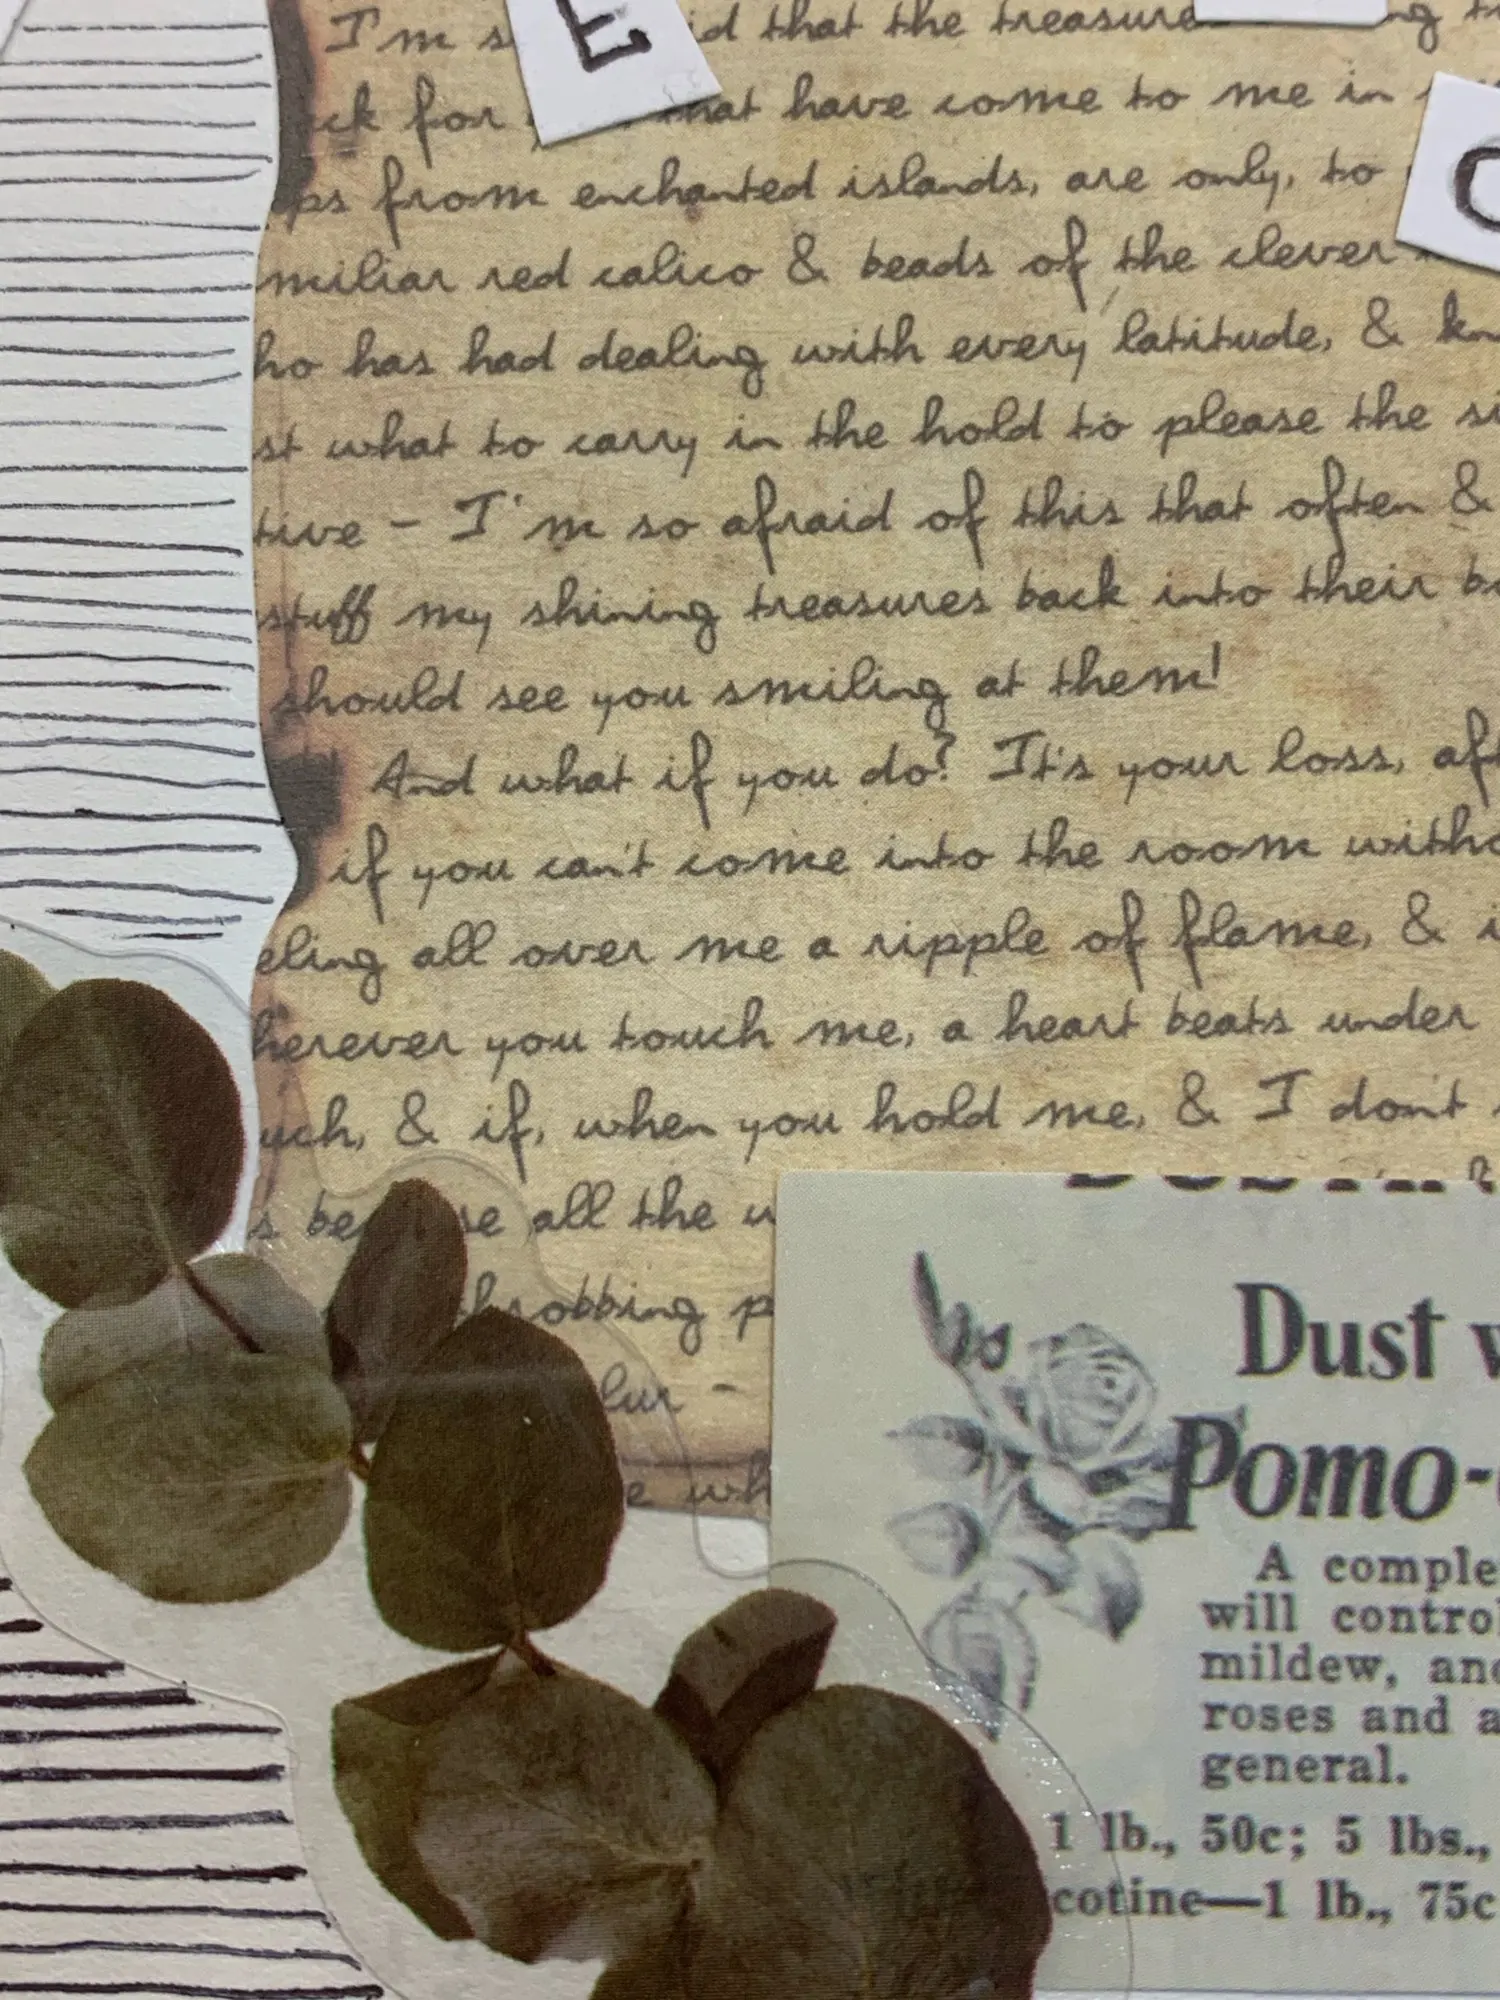 E
I'm that the treasure
for have come to me in
from enchanted islands, are only, to
miliar red calico & beads of the clever
ho has had dealing with every latitude, &
st what to carry in the hold to please the
tive - I'm so afraid of this that often &
stuff my shining treasures back into their
should see you smiling at them!
And what if you do? It's your loss,
if you can't come into the room
eling all over me a ripple of flame, &
herever you touch me, a heart beats under
uch, & if, when you hold me, & I don't
all the
throbbing
wh
Dust
Pomo-
A comple
will contro
mildew, and
roses and a
general.
1 lb., 50c; 5 lbs.,
cotine—1 lb., 75c